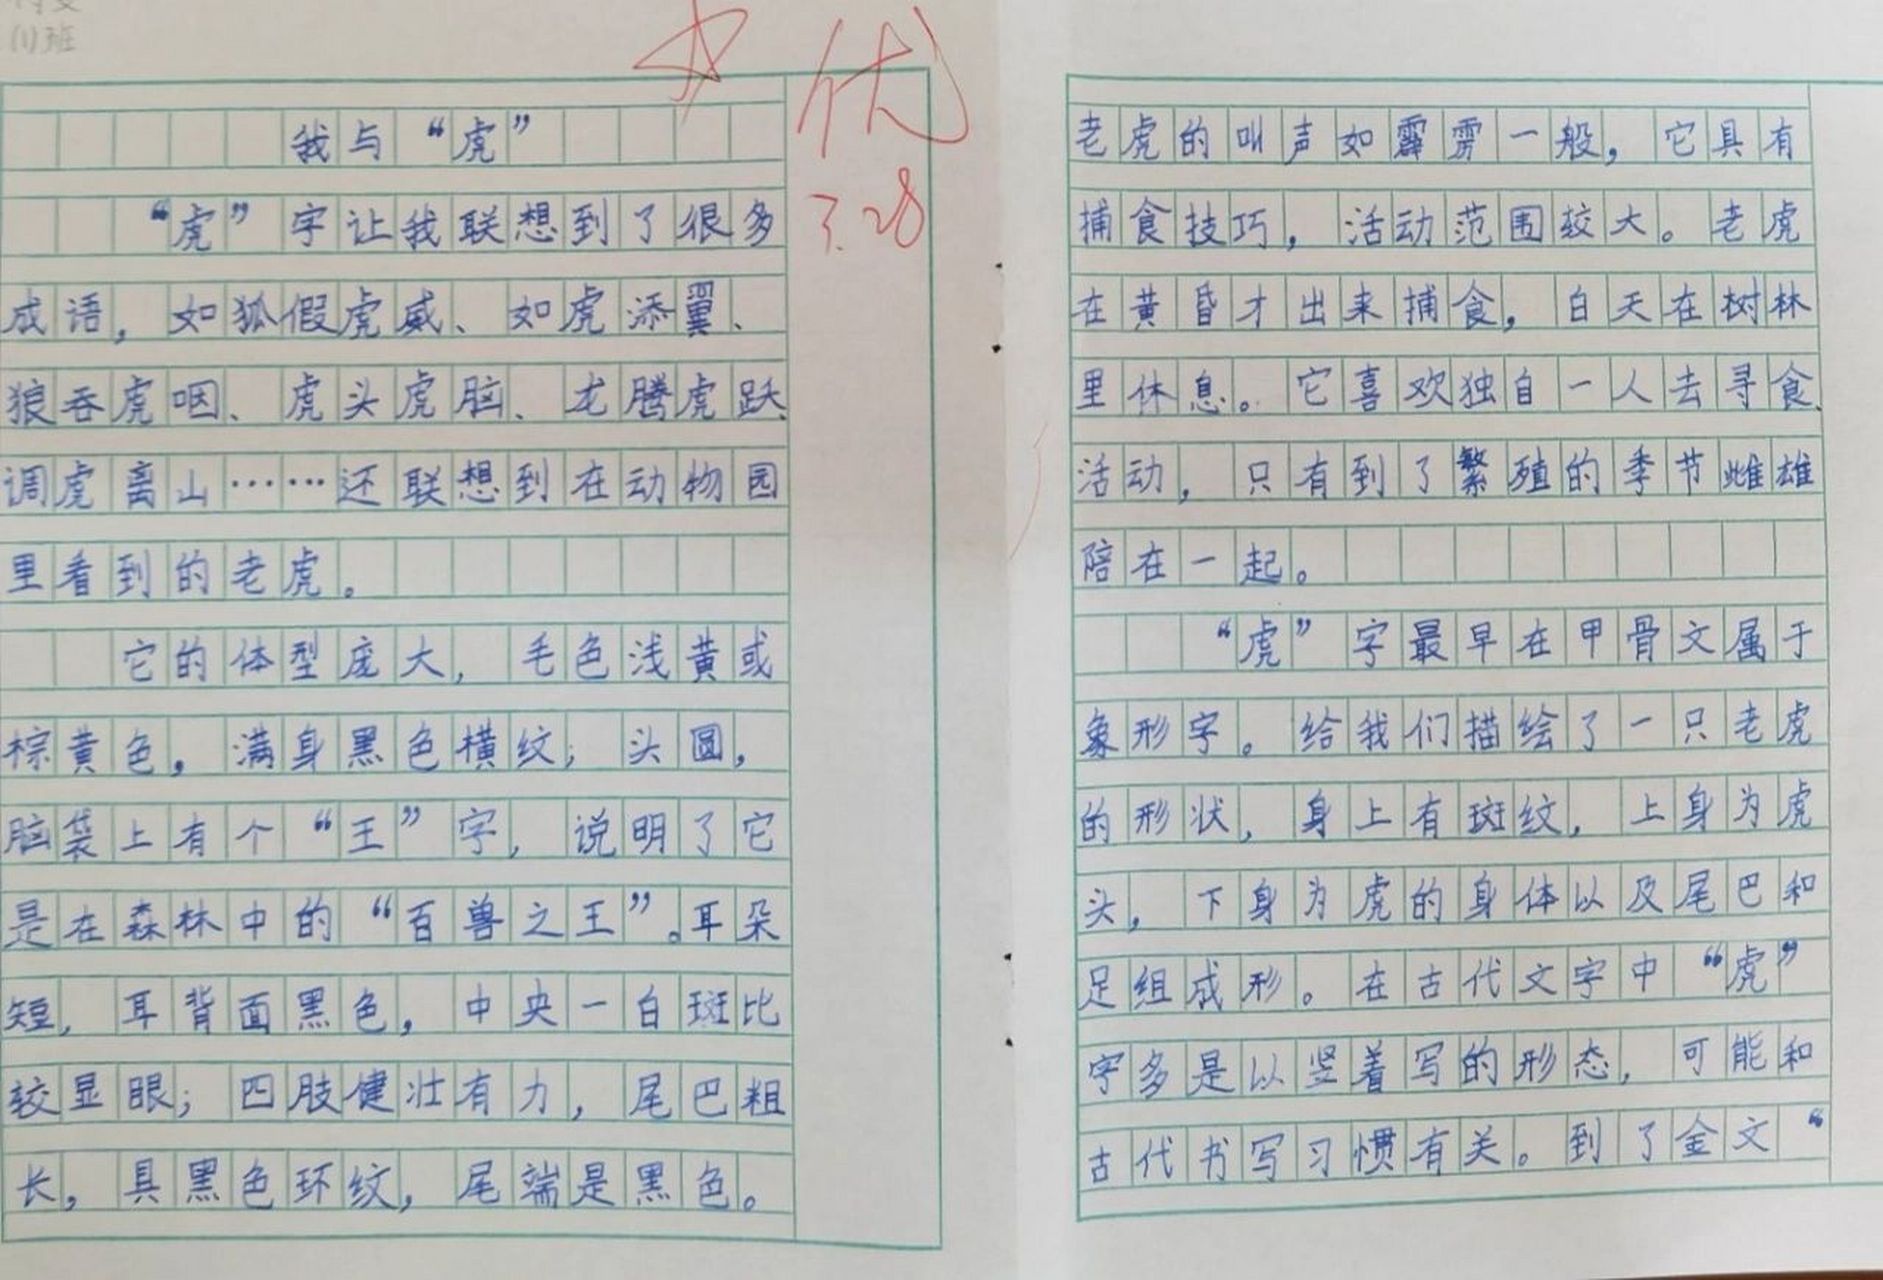 (1)班
优
3.28
我与“虎”
“虎”字让我联想到了很多
成语，如狐假虎威、如虎添翼、
狼吞虎咽、虎头虎脑、龙腾虎跃、
调虎离山……还联想到在动物园
里看到的老虎。
它的体型庞大，毛色浅黄或
棕黄色，满身黑色横纹；头圆，
脑袋上有个“王”字，说明了它
是在森林中的“百兽之王”。耳朵
短，耳背面黑色，中央一白斑比
较显眼；四肢健壮有力，尾巴粗
长，具黑色环纹，尾端是黑色。
老虎的叫声如霹雳一般，它具有
捕食技巧，活动范围较大。老虎
在黄昏才出来捕食，白天在树林
里休息。它喜欢独自一人去寻食、
活动，只有到了繁殖的季节雌雄
陪在一起。
“虎”字最早在甲骨文属于
象形字。给我们描绘了一只老虎
的形状，身上有斑纹，上身为虎
头，下身为虎的身体以及尾巴和
足组成形。在古代文字中“虎”
字多是以竖着写的形态，可能和
古代书写习惯有关。到了金文“